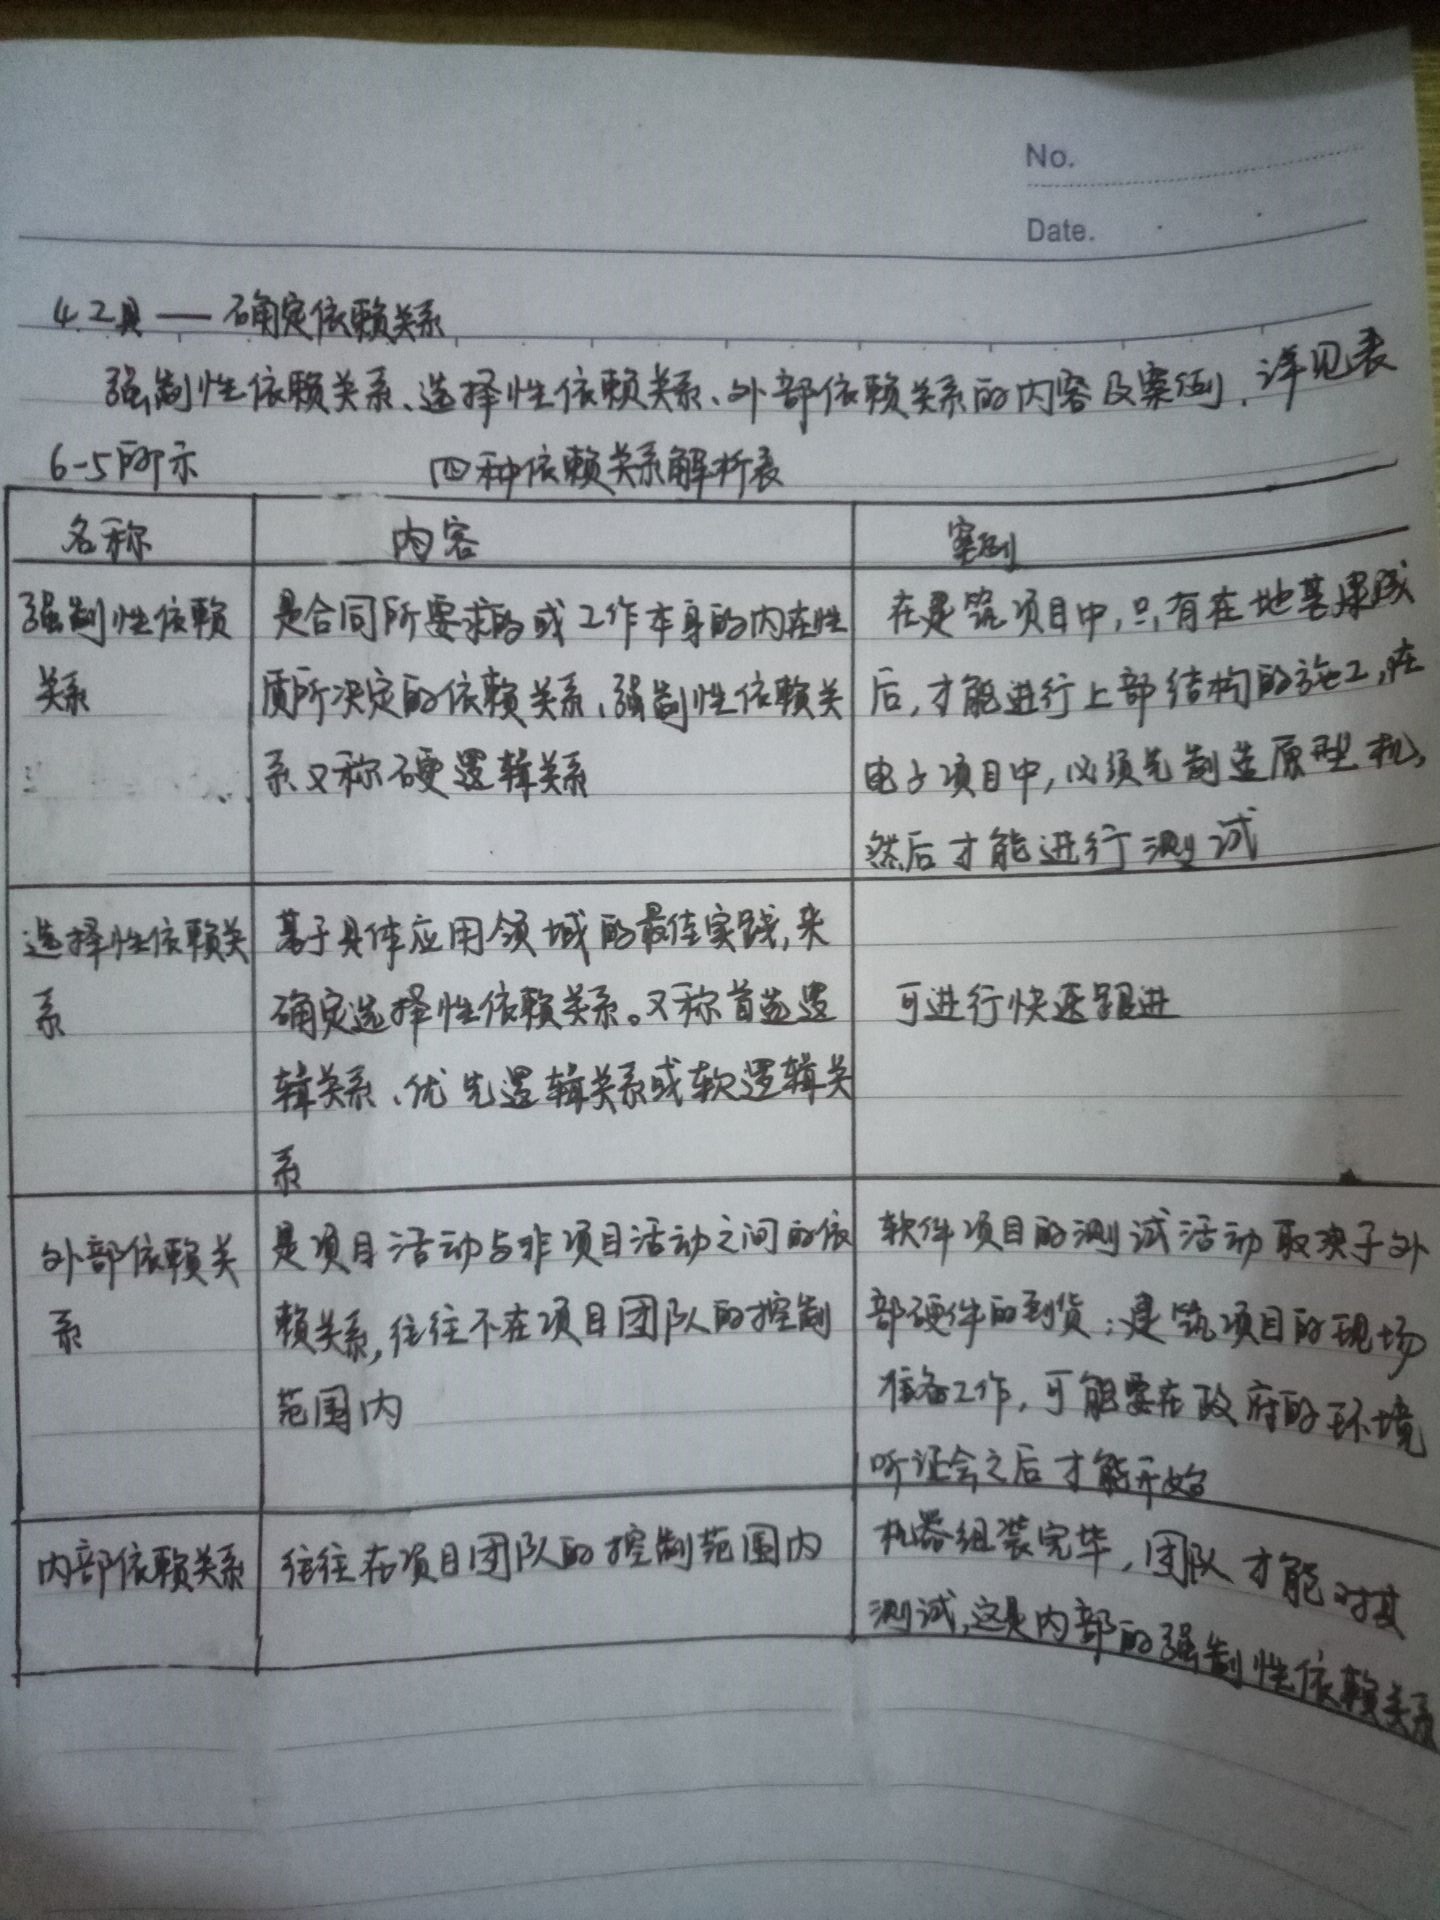 No.
Date.
4.工具——确定依赖关系
强制性依赖关系、选择性依赖关系、外部依赖关系的内容及案例.详见表
6-5所示 四种依赖关系解析表
名称 内容 案例
强制性依赖 是合同所要求的或工作本身的内在性 在建筑项目中,只有在地基建成
关系 质所决定的依赖关系、强制性依赖关 后,才能进行上部结构的施工,在
系又称硬逻辑关系 电子项目中,必须先制造原型机,
然后才能进行测试
选择性依赖关 基于具体应用领域的最佳实践,来
系 确定选择性依赖关系。又称首选逻 可进行快速跟进
辑关系、优先逻辑关系或软逻辑关
系
外部依赖关 是项目活动与非项目活动之间的依 软件项目的测试活动取决于外
系 赖关系,往往不在项目团队的控制 部硬件的到货;建筑项目的现场
范围内 准备工作,可能要在政府的环境
听证会之后才能开始
内部依赖关系 往往在项目团队的控制范围内 机器组装完毕,团队才能对其
测试,这是内部的强制性依赖关系